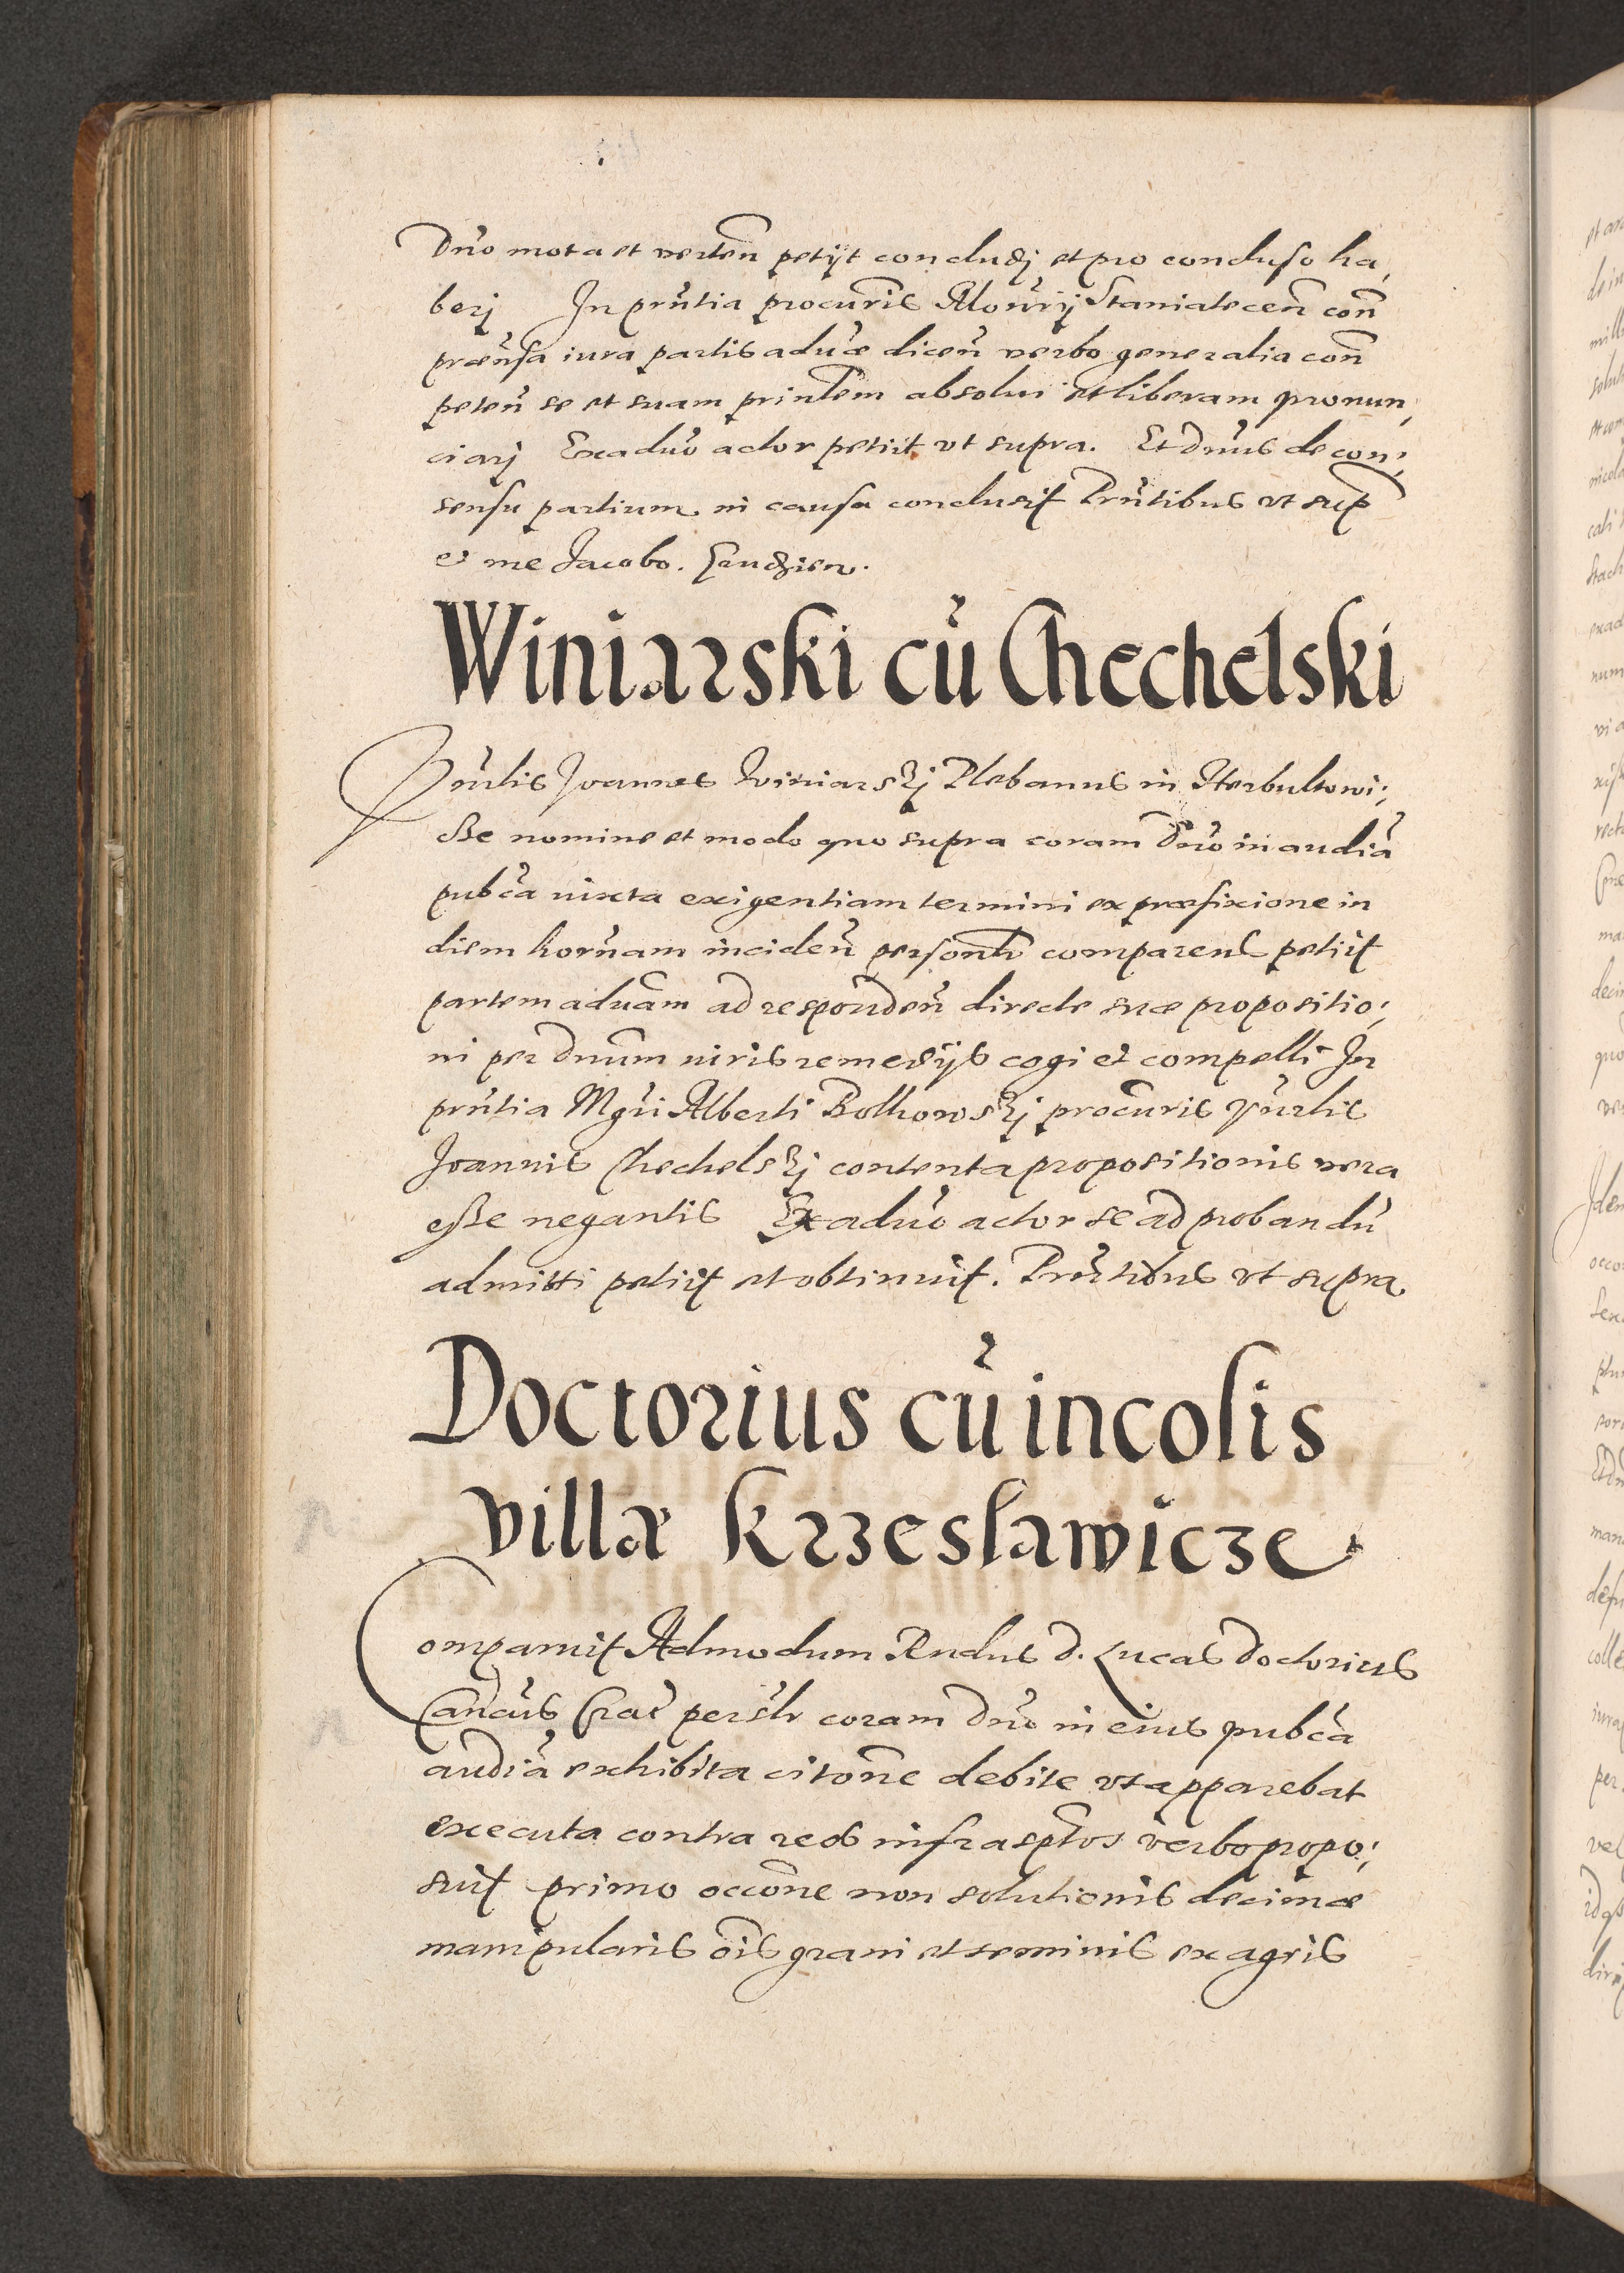 Dnō mota et verten̄ petijt concludj et pro concluso ha,
berj In prn̄tia procur̄is Mon̄rij Staniatecen̄ con̄
praen̄sa iura partis adu̅ae dicen̄ verbo generalia con̄
peten̄ se et suam prin̄lem absolui et liberam pronun,
ciarj Ex adu̅o actor petiit vt supra. Et Dn̄us de con;
sensu partium in causa conclusit Prn̄tibus vt sup
et me Jacobo.
Winiarski cū Chechelski
Joannes Winiarskj Plebanus in Herbultowi;
sse nomine et modo quo supra coram Dn̄o in audiā
pub̄ca iuxta exigentiam termini ex praefixione in
diem hor̄nam inciden̄ person̄lr comparens petiit
partem adu̅am ad responden̄ directe suae propositio;
ni per Dn̄um iuris remedijs cogi et compelli In
prn̄tia Mgr̄i Alberti Bolhowskj procur̄is
Joannis Chechelskj contenta propositionis vera
esse negantis Ex adu̅o actor se ad probandū
admitti petiit et obtinuit. Prn̄tibus vt supra
Doctorius cū incolis
villae Krzeslawicze
Comparuit Admodum Rn̄dus d. Lucas Doctorius
Can̄cus Crac̄ persl̄r coram Dn̄o in eius pub̄ca
audiā exhibita citōne debite vt apparebat
executa contra reos infrasp̄tos verbo propo;
suit primo occōne non solutionis decimae
manipularis ōis grani et seminis ex agris